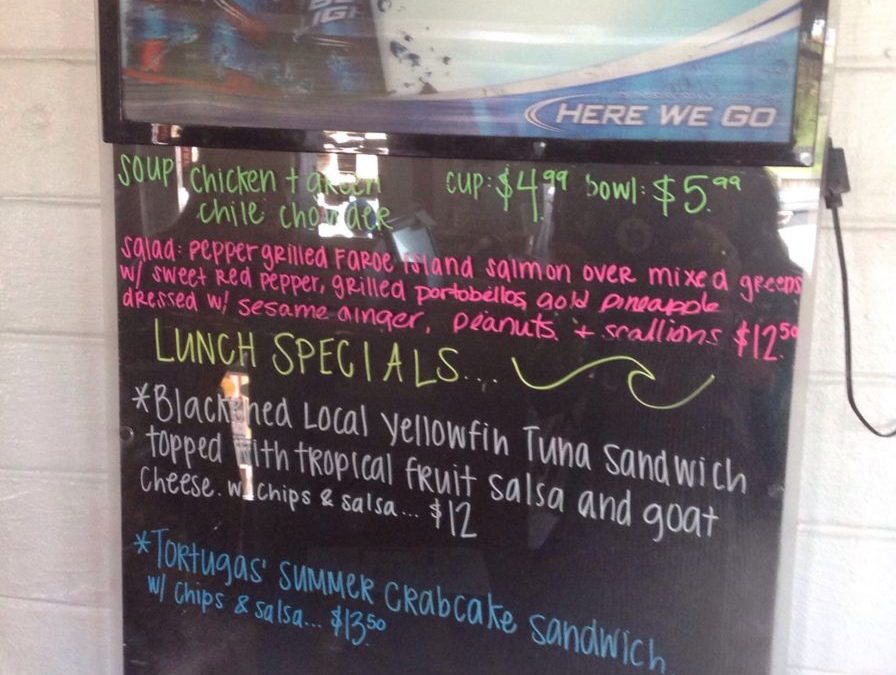 LIGHT
HERE WE GO
soup: chicken + green cup: $4.99 bowl: $5.99
chile chowder
salad: peppergrilled Faroe island salmon over mixed greens
w/ sweet red pepper, grilled portobellos, gold pineapple
dressed w/ sesame ginger, peanuts + scallions $12.50
LUNCH SPECIALS...
*Blackened Local Yellowfin Tuna Sandwich
topped with tropical fruit salsa and goat
cheese. w/ chips & salsa... $12
*Tortugas' summer crabcake sandwich
w/ chips & salsa... $13.50